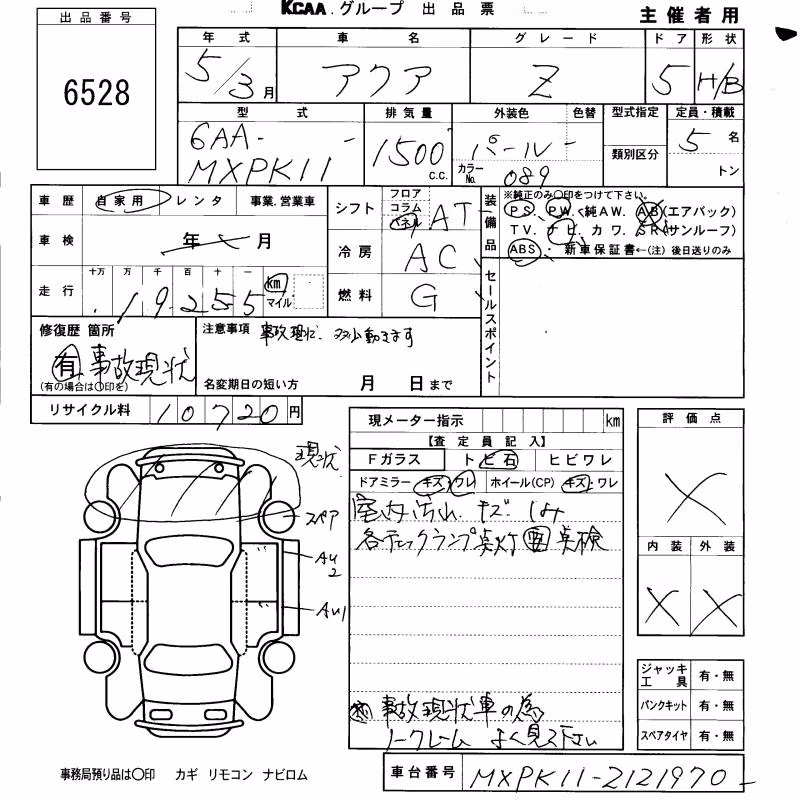 KCAA.グループ 出品票
主催者用
出品番号
6528
年式 車名 グレード ドア 形状
5/3月 アクア Z 5 H/B
型式 排気量 外装色 色替 型式指定 定員・積載
6AA-
MXPK11
1500 c.c.
パール
カラーNo. 089
類別区分
5 名
トン
車歴 自家用 レンタ 事業.営業車
車検 年 月
走行 十万 万 千 百 十 一
19255 km マイル
シフト フロア コラム パネル AT
冷房 AC
燃料 G
装備品
※純正のみ〇印をつけて下さい。
PS. PW. 純AW. AB(エアバック)
TV. ナビ. カワ. SR(サンルーフ)
ABS. 新車保証書←(注) 後日送りのみ
セールスポイント
修復歴 箇所
有 事故現状
(有の場合は〇印を)
注意事項 事故現状. 多少動きます
名変期日の短い方 月 日まで
リサイクル料 10720円
現メーター指示 km
【査定員記入】
Fガラス ト ビ石 ヒビワレ
ドアミラー キズ.ワレ ホイール(CP) キズ.ワレ
室内汚れ. キズ. しみ
各チェックランプ点灯 要 点検
事故現状車の為
ノークレーム よく見て下さい
現状
スペア
AU2
AU1
評価点
X
内装 外装
X X
ジャッキ工具 有・無
パンクキット 有・無
スペアタイヤ 有・無
事務局預り品は〇印 カギ リモコン ナビロム
車台番号 MXPK11-2121970